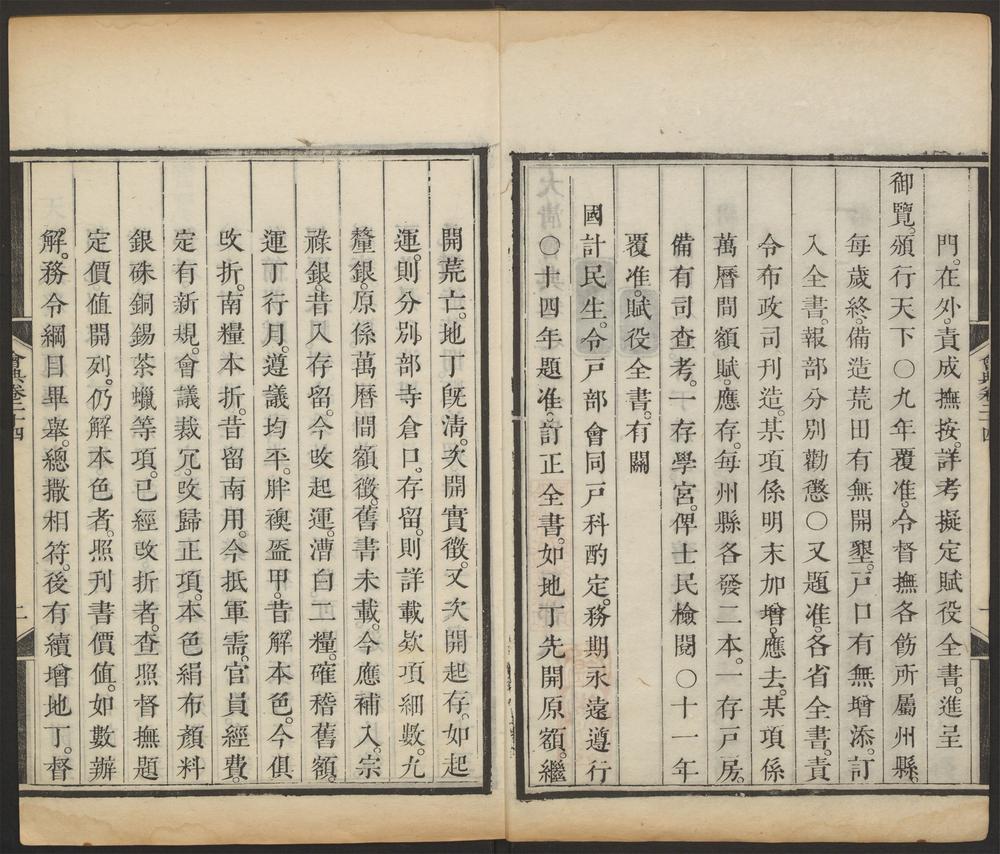 門。在外責成撫按。詳考擬定賦役全書。進呈
御覽。頒行天下○九年覆准。令督撫各飭所屬州縣。
每歲終。備造荒田有無開墾。戸口有無增添。訂
入全書。報部分別勸懲○又題准。各省全書。責
令布政司刊造。某項係明末加增。應去。某項係
萬曆間額賦。應存。每州縣各發二本。一存戸房。
備有司查考。一存學宮。俾士民檢閱○十一年
覆准。賦役全書。有關
國計民生。令戸部會同戸科酌定。務期永遠遵行
○十四年題准。訂正全書。如地丁先開原額。繼
會典卷二十四
一
開荒亡。地丁旣淸。次開實徵。又次開起存。如起
運。則分別。部寺倉口。存留。則詳載欵項細數。九
釐銀。原係萬曆間額徵。舊書未載。今應補入。宗
祿銀。昔入存留。今攺起運。漕白二糧。確稽舊額。
運丁行月。遵議均平。胖襖盔甲。昔解本色。今俱
攺折。南糧本折。昔留南用。今抵軍需。官員經費。
定有新規。會議裁冗。攺歸正項。本色絹布顏料
銀硃銅錫茶蠟等項。已經攺折者。查照督撫題
定價值開列。仍解本色者。照刊書價值。如數辦
解。務令綱目畢舉。總撒相符。後有續增地丁。督
會典卷二十四
二